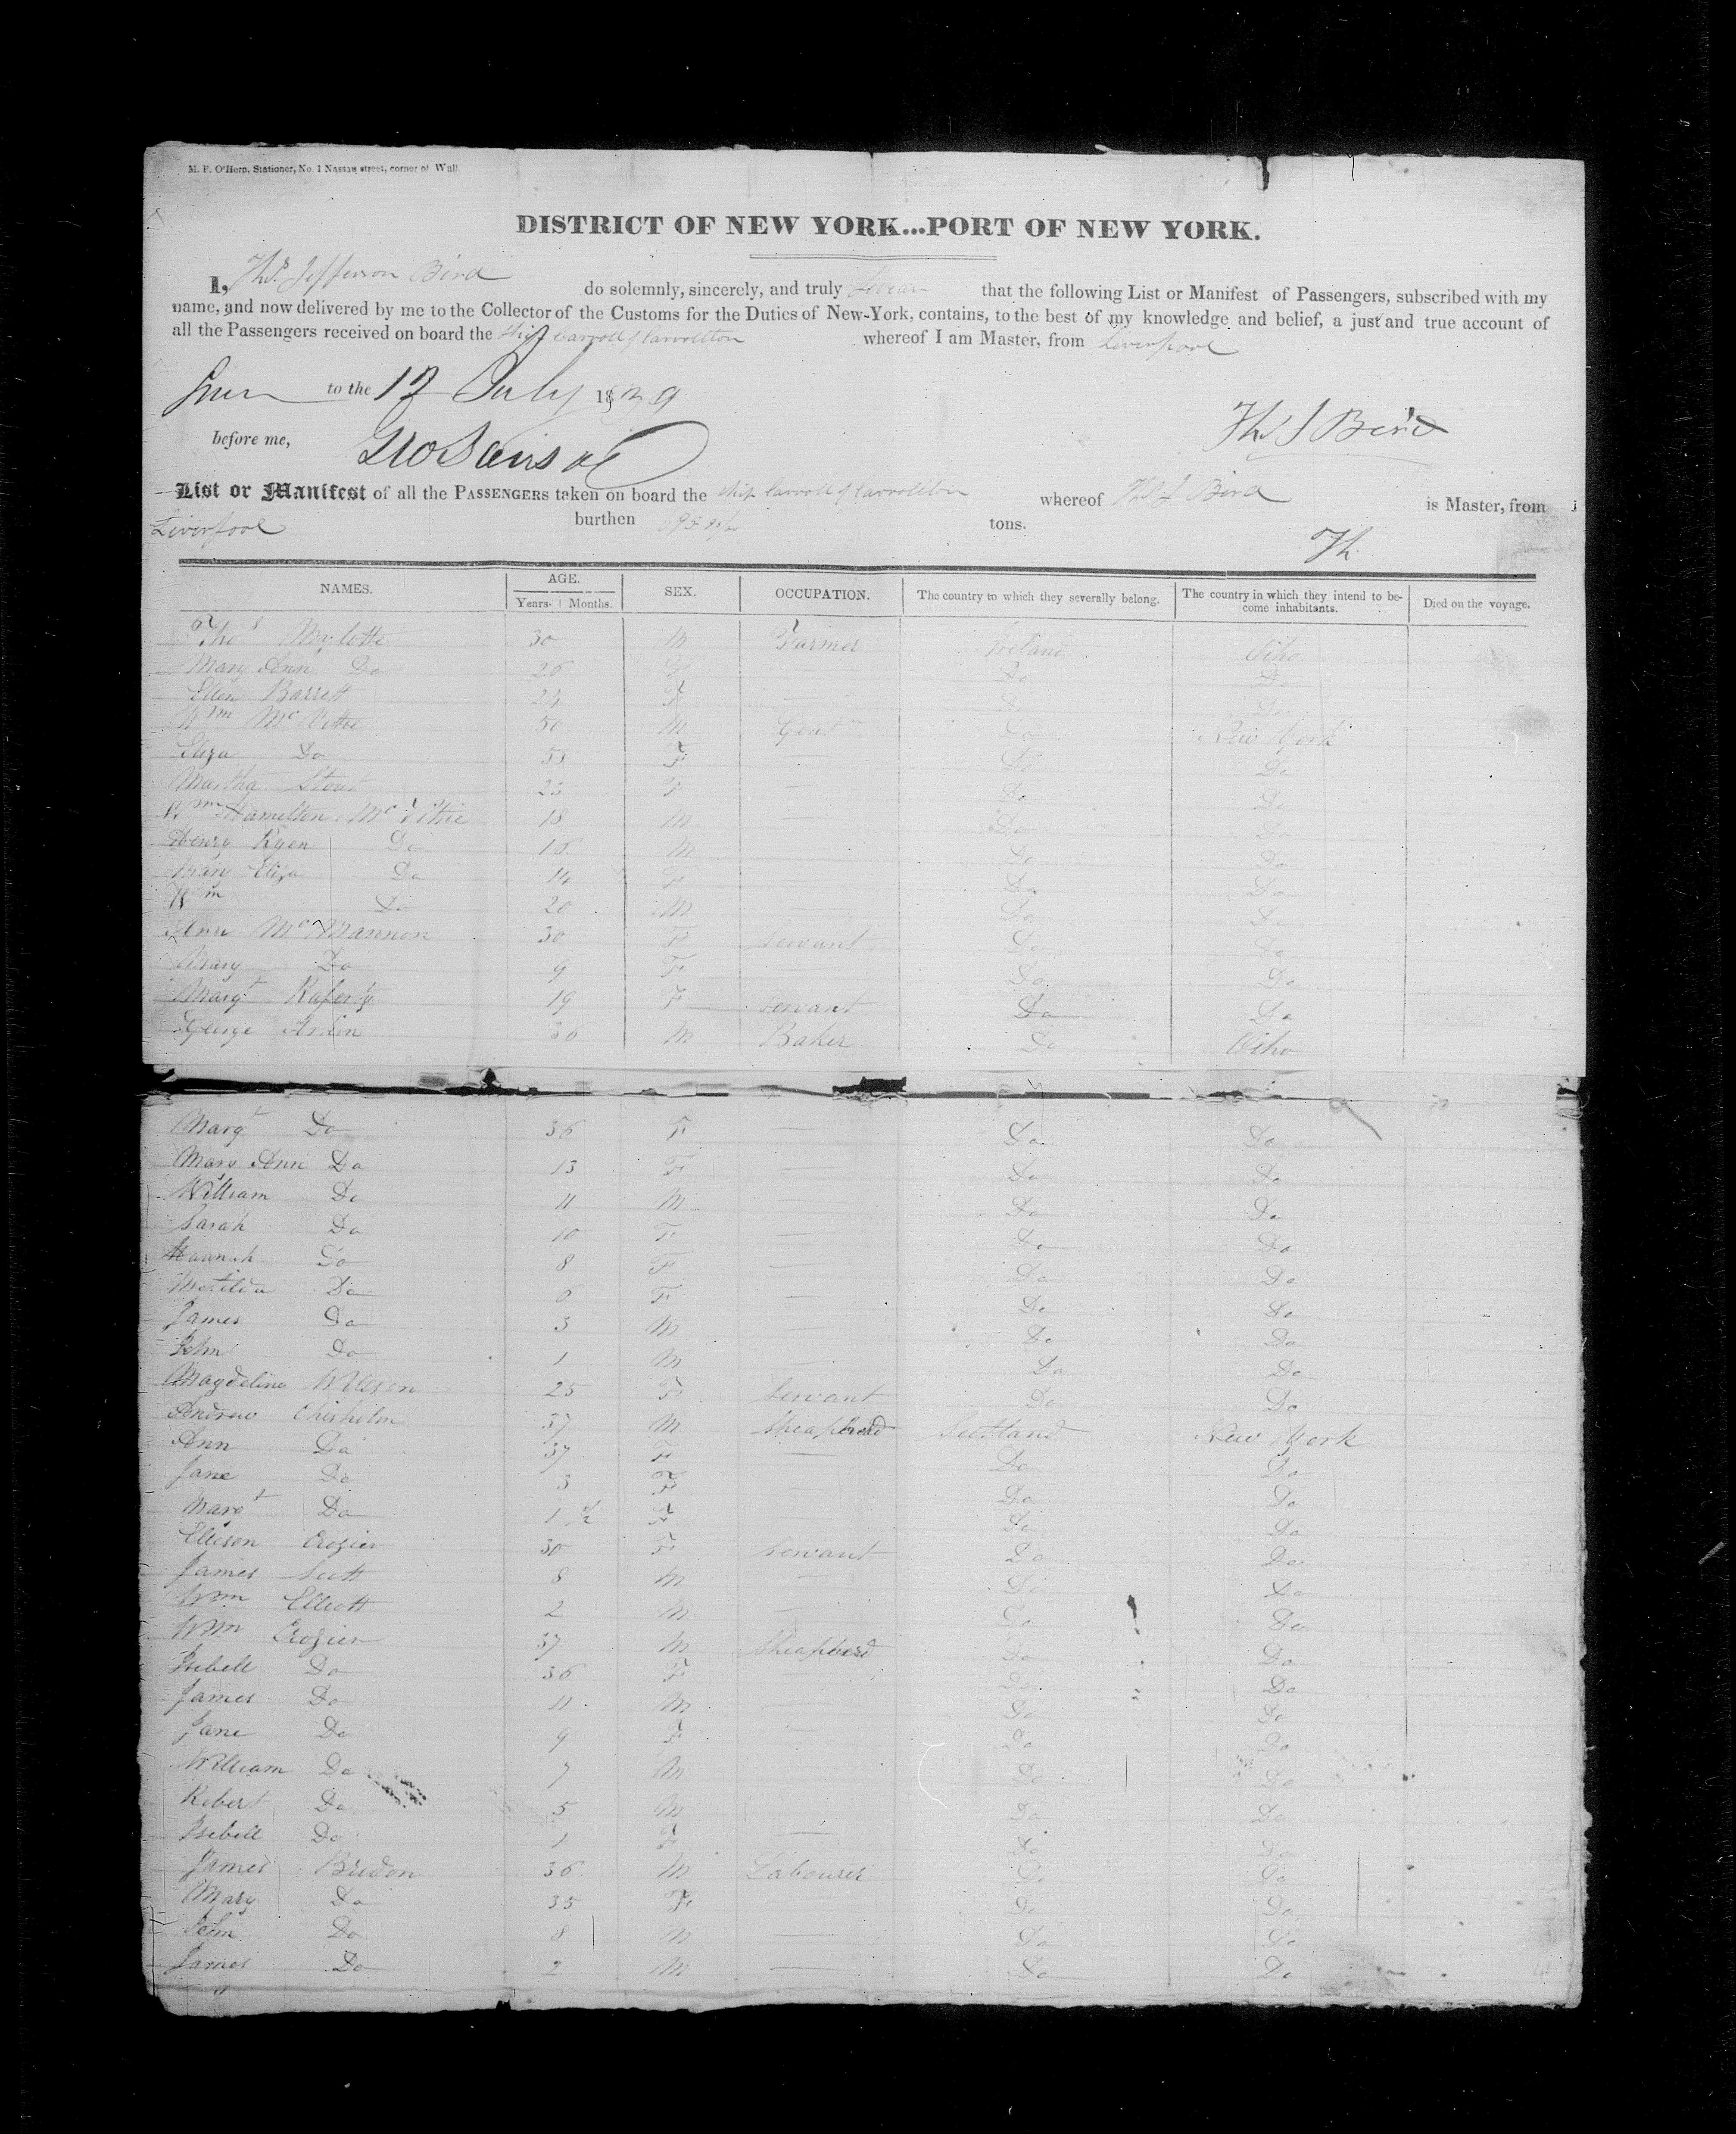 M. F. O'Hern, Stationer, No. 1 Nassau street, corner of Wall.
DISTRICT OF NEW YORK...PORT OF NEW YORK.
I, Thos. Jefferson Bird do solemnly, sincerely, and truly swear that the following List or Manifest of Passengers, subscribed with my
name, and now delivered by me to the Collector of the Customs for the Duties of New-York, contains, to the best of my knowledge and belief, a just and true account of
all the Passengers received on board the Ship Carroll of Carrollton whereof I am Master, from Liverpool
to the 12 July 1839
Ths J Bird
before me,
List or Manifest of all the PASSENGERS taken on board the Ship Carroll of Carrollton whereof Ths J Bird is Master, from
Liverpool burthen tons.
Th
NAMES. AGE. SEX. OCCUPATION. The country to which they severally belong. The country in which they intend to become inhabitants. Died on the voyage.
Years. Months.
Thos Mylotte 30 M Farmer Ireland Oiho
Mary Ann Do 26 F Do Do
Ellen Barrett 24 F — Do Do
Wm McVittie 50 M Gent Do New York
Eliza Do 53 F — Do Do
Martha Stout 23 F — Do Do
Wm Hamelton McVittie 18 M — Do Do
Henry Ryen Do 16 M — Do Do
Mary Eliza Do 14 F — Do Do
Wm Do 20 M — Do Do
Ann McMannon 30 F Servant Do Do
Mary Do 9 F — Do Do
Margt Raferty 19 F Servant Do Do
George 36 M Baker Do Oiho
Margt Do 36 F — Do Do
Mary Ann Do 13 F — Do Do
William Do 11 M — Do Do
Sarah Do 10 F — Do Do
Hannah Do 8 F — Do Do
Matilda Do 6 F — Do Do
James Do 3 M — Do Do
John Do 1 M — Do Do
Magdeline Wilson 25 F Servant Do Do
Andrew Chisholm 37 M Sheapherd Scotland New York
Ann Do 37 F — Do Do
Jane Do 3 F Do Do
Margt Do 1 1/2 F Do Do
Ellison Crozier 30 F Servant Do Do
James Scott 8 M — Do Do
Wm Elliott 2 M — Do Do
Wm Crozier 37 M Sheapherd Do Do
Isebell Do 36 F Do Do
James Do 11 M — Do Do
Jane Do 9 F — Do Do
William Do 7 M Do Do
Robert Do 5 M — Do Do
Isebell Do 1 F — Do Do
James Bridon 36 M Labourer Do Do
Mary Do 35 F — Do Do
John Do 8 M — Do Do
James Do 2 M — Do Do